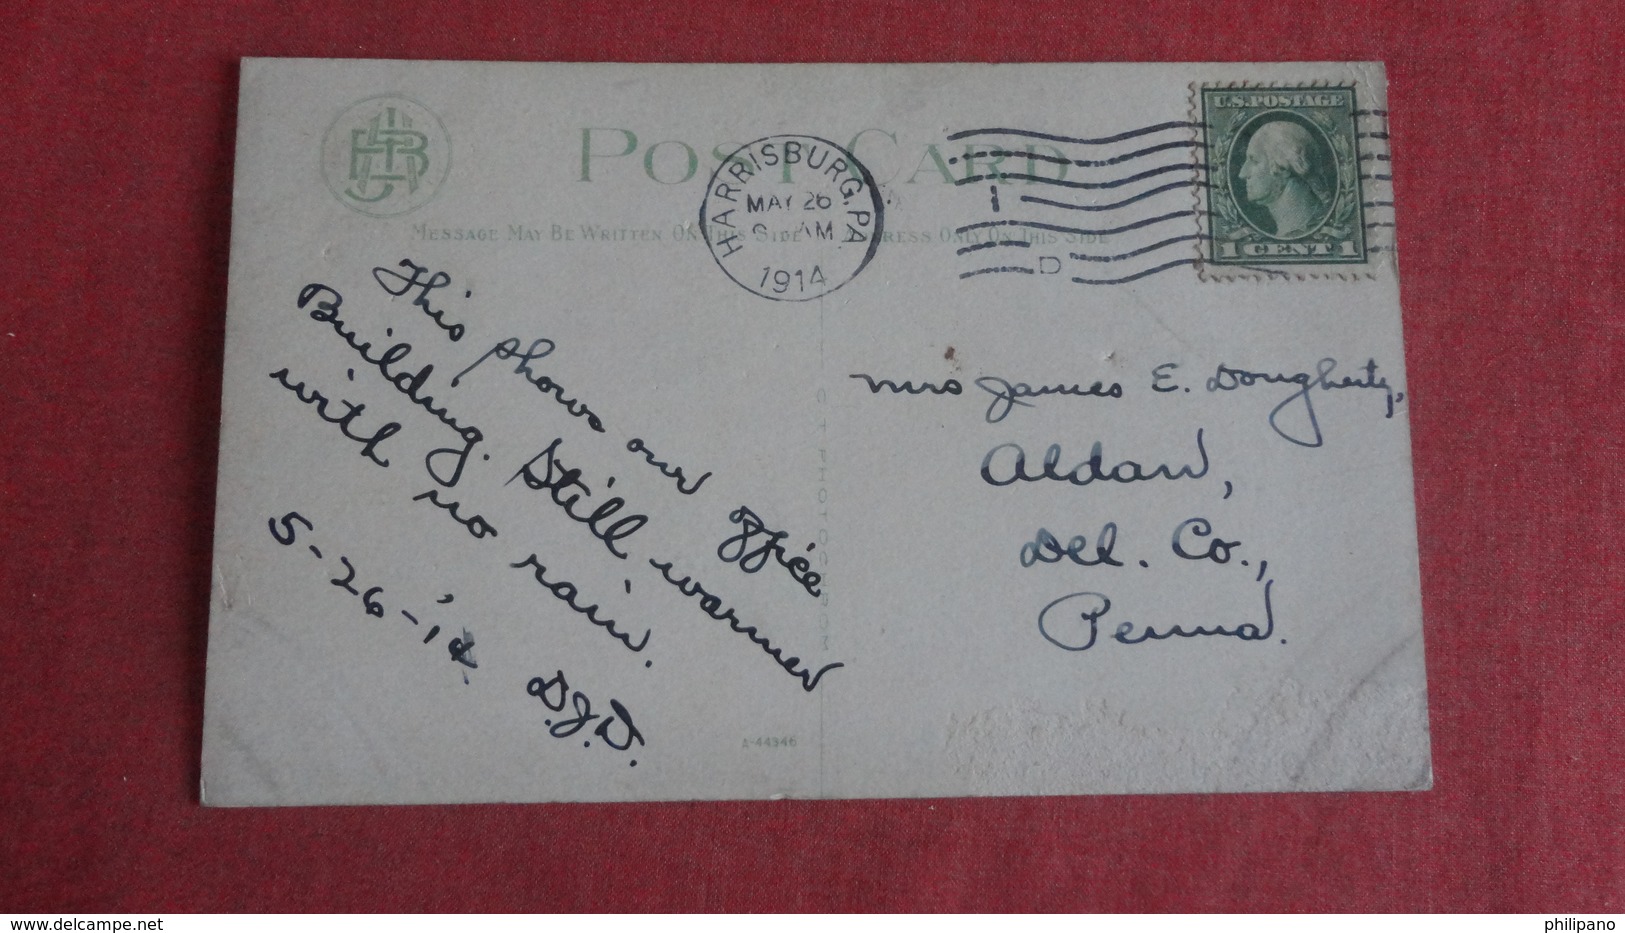 POST CARD
MESSAGE MAY BE WRITTEN ON THIS SIDE
ADDRESS ONLY ON THIS SIDE
HARRISBURG, PA.
MAY 26
AM
1914
D
U.S. POSTAGE
1 CENT 1
This shows our office
Building. Still warmer
with no rain.
5-26-'14
D.J.D.
Mrs James E. Dougherty,
Aldan,
Del. Co.,
Penna.
PHOTOCHROM
A-44346
delcampe.net
philipano